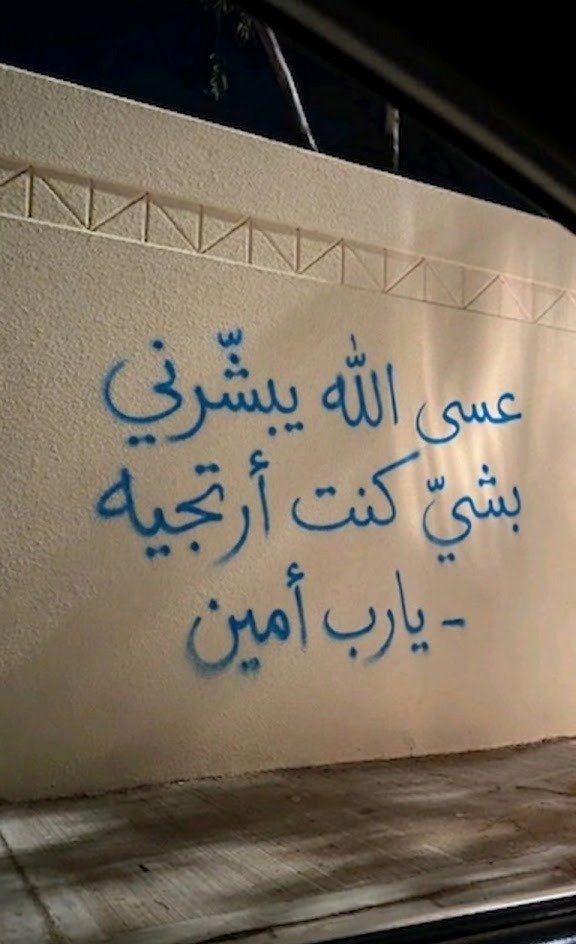 عسى الله يبشّرني
بشيّ كنت أرتجيه
- يارب أمين